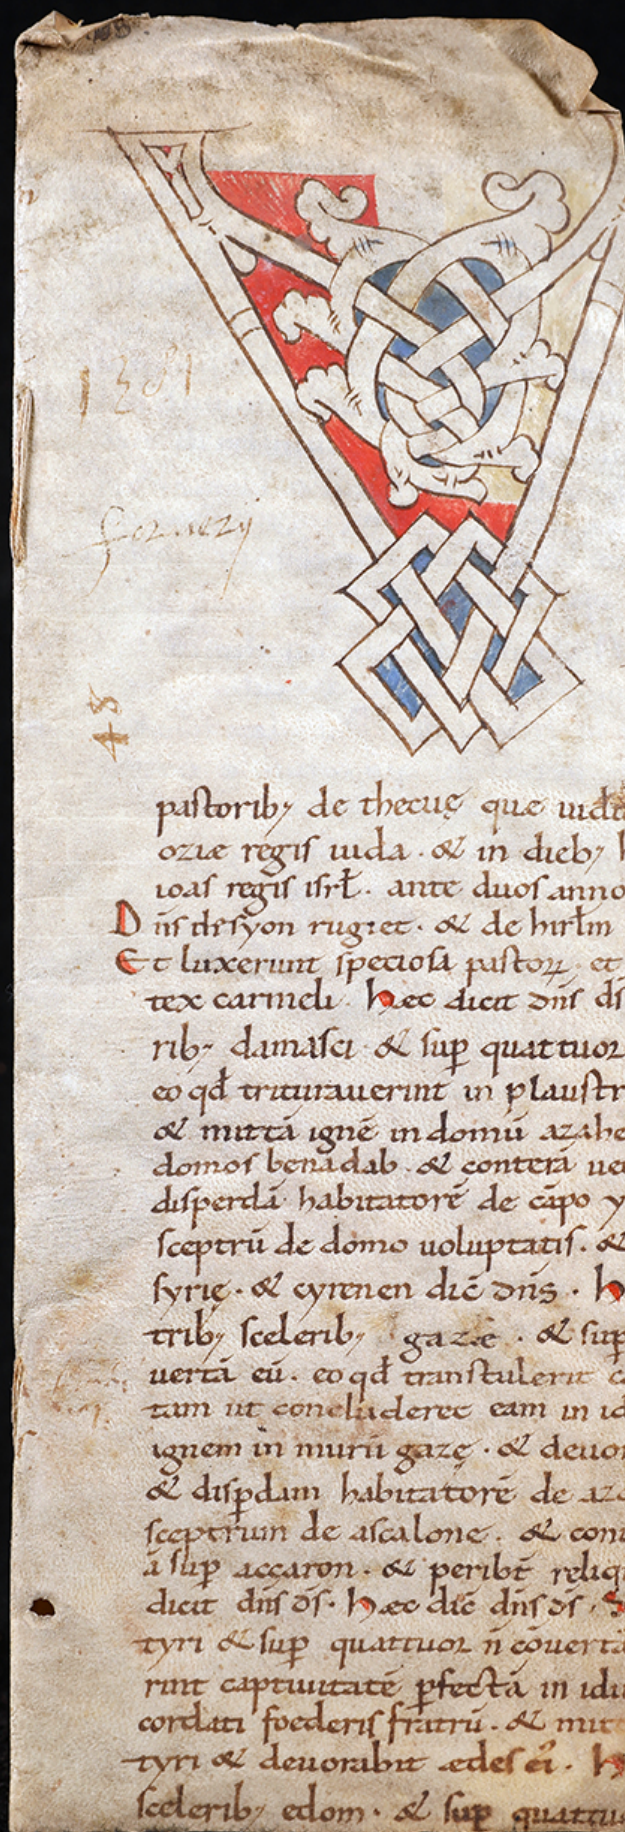 V
1381
48
pastorib; de thecuę que uidit
oziæ regis iuda · & in dieb;
ioas regis isrł · ante duos anno
Dns de syon rugiet · & de hirłm
Et luxerunt speciosa pastoꝝ · et
tex carmeli · hæc dicit dns ds
rib; damasci · & sup quattuor
eo qđ trituraverint in plaustr
& mittā ignē in domū azahe
domos benadab · & conterā ue
disperdā habitatorē de cāpo
sceptrū de domo uoluptatis · &
syrię · & cyrenen dic̄ dns · h
trib; scelerib; gazæ · & sup
uertā eū · eo qđ transtulerit c
tam ut concluderet eam in id
ignem in murū gazę · & deuor
& disꝑdam habitatorē de azo
sceptrum de ascalone · & conu
ā sup accaron · & peribt̄ reliq
dicit dns ds · hæc dic̄ dns ds ·
tyri & sup quattuor ñ cōuertā
rint captiuitatē ꝑfectā in idu
cordati foederis fratrū · & mitt
tyri & deuorabit ædes ei · h
scelerib; edom · & sup quattu